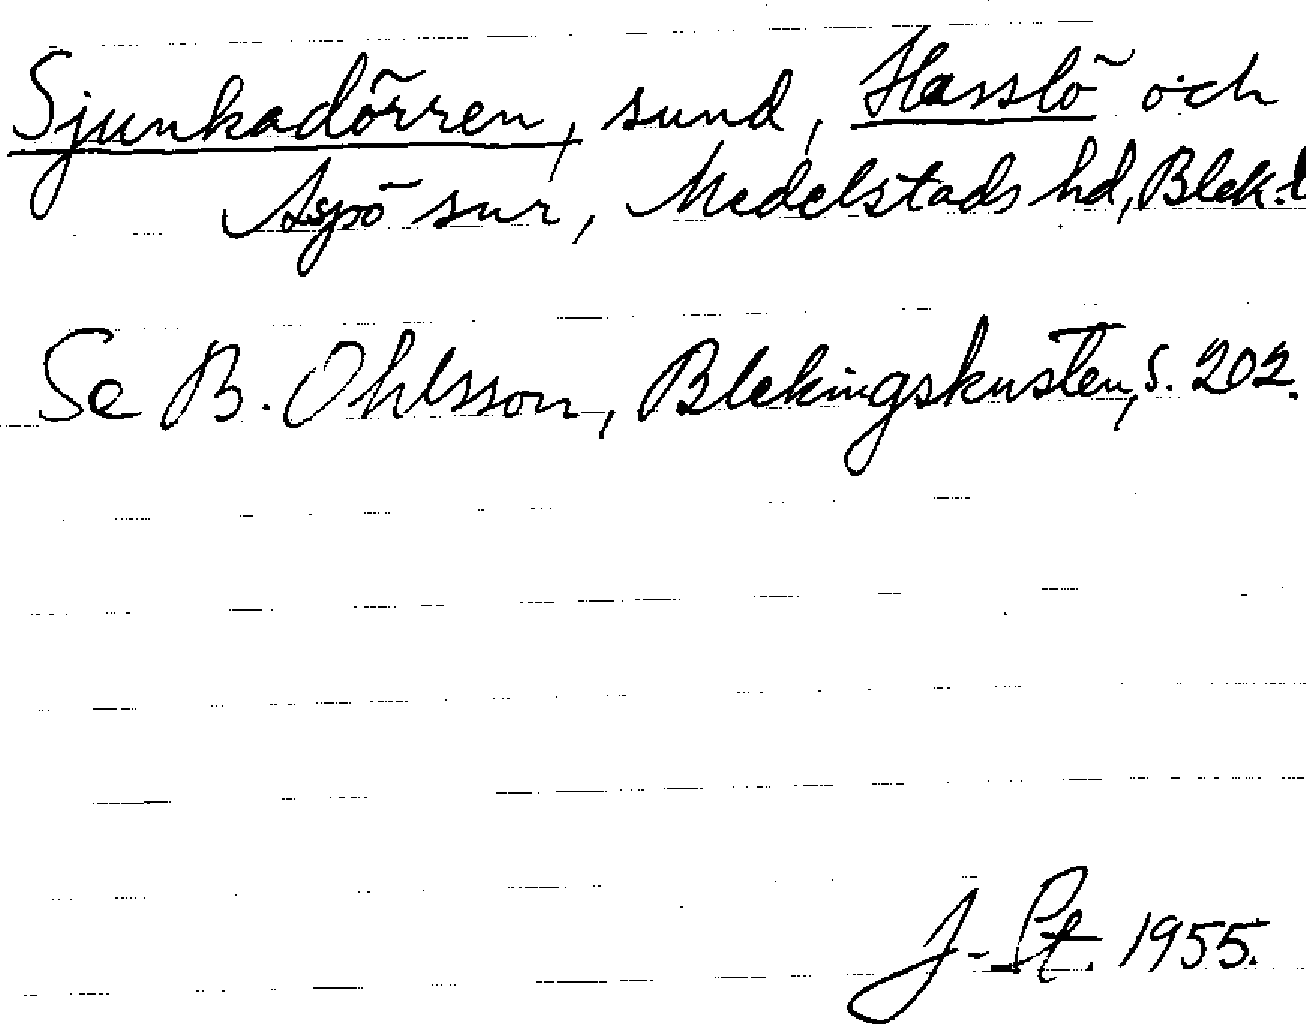 Sjunkadörren, sund, Hasslö och
Aspö snr, Medelstads hd, Blek. l
Se B. Ohlsson, Blekingskusten, s. 202.
J. St. 1955.